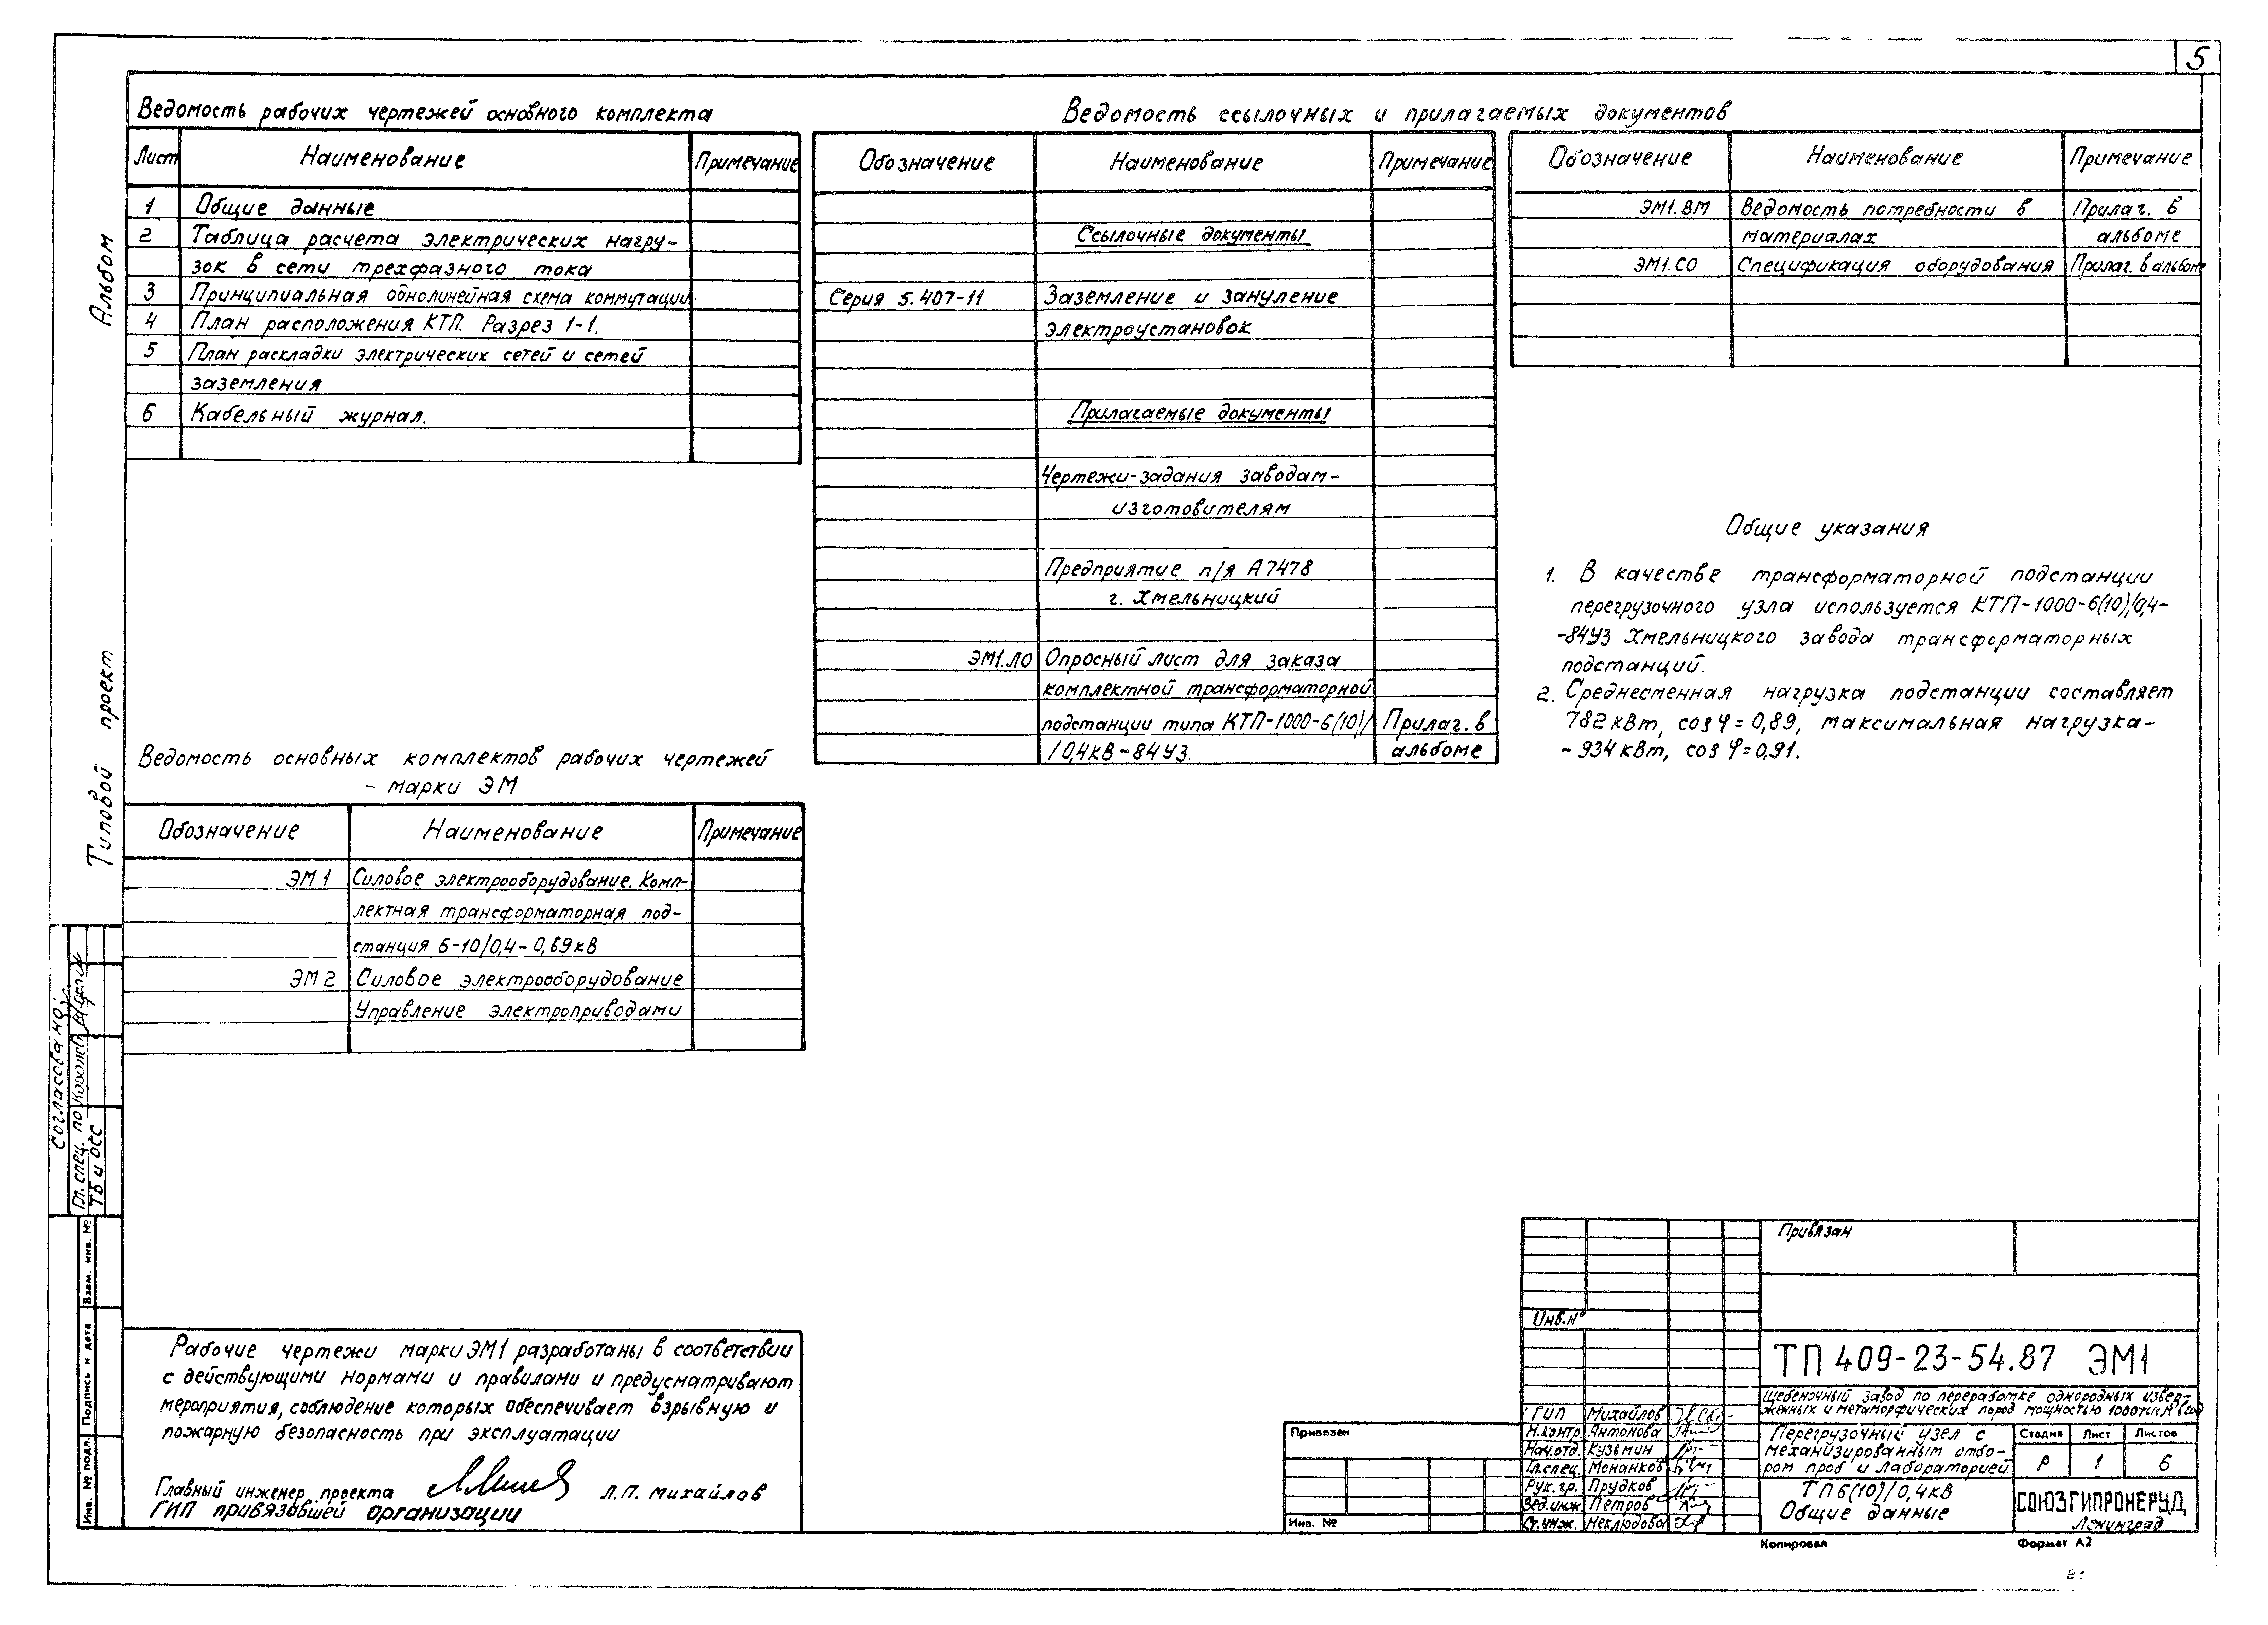 5
Ведомость рабочих чертежей основного комплекта
Лист Наименование Примечание
1 Общие данные
2 Таблица расчета электрических нагру-
зок в сети трехфазного тока
3 Принципиальная однолинейная схема коммутации
4 План расположения КТП. Разрез 1-1.
5 План раскладки электрических сетей и сетей
заземления
6 Кабельный журнал.
Ведомость ссылочных и прилагаемых документов
Обозначение Наименование Примечание
Ссылочные документы
Серия 5.407-11 Заземление и зануление
электроустановок
Прилагаемые документы
Чертежи-задания заводам-
изготовителям
Предприятие п/я А7478
г. Хмельницкий
ЭМ1.ЛО Опросный лист для заказа
комплектной трансформаторной
подстанции типа КТП-1000-6(10)/ Прилаг. в
/0,4кВ-84У3. альбоме
Обозначение Наименование Примечание
ЭМ1.ВМ Ведомость потребности в Прилаг. в
материалах альбоме
ЭМ1.СО Спецификация оборудования Прилаг. в альбоме
Общие указания
1. В качестве трансформаторной подстанции
перегрузочного узла используется КТП-1000-6(10)/0,4-
-84У3 Хмельницкого завода трансформаторных
подстанций.
2. Среднесменная нагрузка подстанции составляет
782 кВт, cos φ = 0,89, максимальная нагрузка-
- 934 кВт, cos φ = 0,91.
Ведомость основных комплектов рабочих чертежей
- марки ЭМ
Обозначение Наименование Примечание
ЭМ 1 Силовое электрооборудование. Комп-
лектная трансформаторная под-
станция 6-10/0,4-0,69кВ
ЭМ 2 Силовое электрооборудование
Управление электроприводами
Альбом
Типовой проект
Согласовано:
Гл. спец. по
ТБ и ОСС
Взам. инв. №
Подпись и дата
Инв. № подл.
Рабочие чертежи марки ЭМ1 разработаны в соответствии
с действующими нормами и правилами и предусматривают
мероприятия, соблюдение которых обеспечивает взрывную и
пожарную безопасность при эксплуатации
Главный инженер проекта Л.П. Михайлов
ГИП привязавшей организации
Привязан
Инв. №
Привязан
Инв. №
ТП 409-23-54.87 ЭМ1
Щебеночный завод по переработке однородных извер-
женных и метаморфических пород мощностью 1000 тыс. м³ в год
ГИП Михайлов
Н.контр. Антонова
Нач.отд. Кузьмин
Гл.спец. Монанков
Рук. гр. Прудков
Вед.инж. Петров
Ст.инж. Неклюдова
Перегрузочный узел с
механизированным отбо-
ром проб и лабораторией.
Стадия Лист Листов
Р 1 6
ТП 6(10)/0,4кВ
Общие данные
СОЮЗГИПРОНЕРУД
Ленинград
Копировал Формат А2